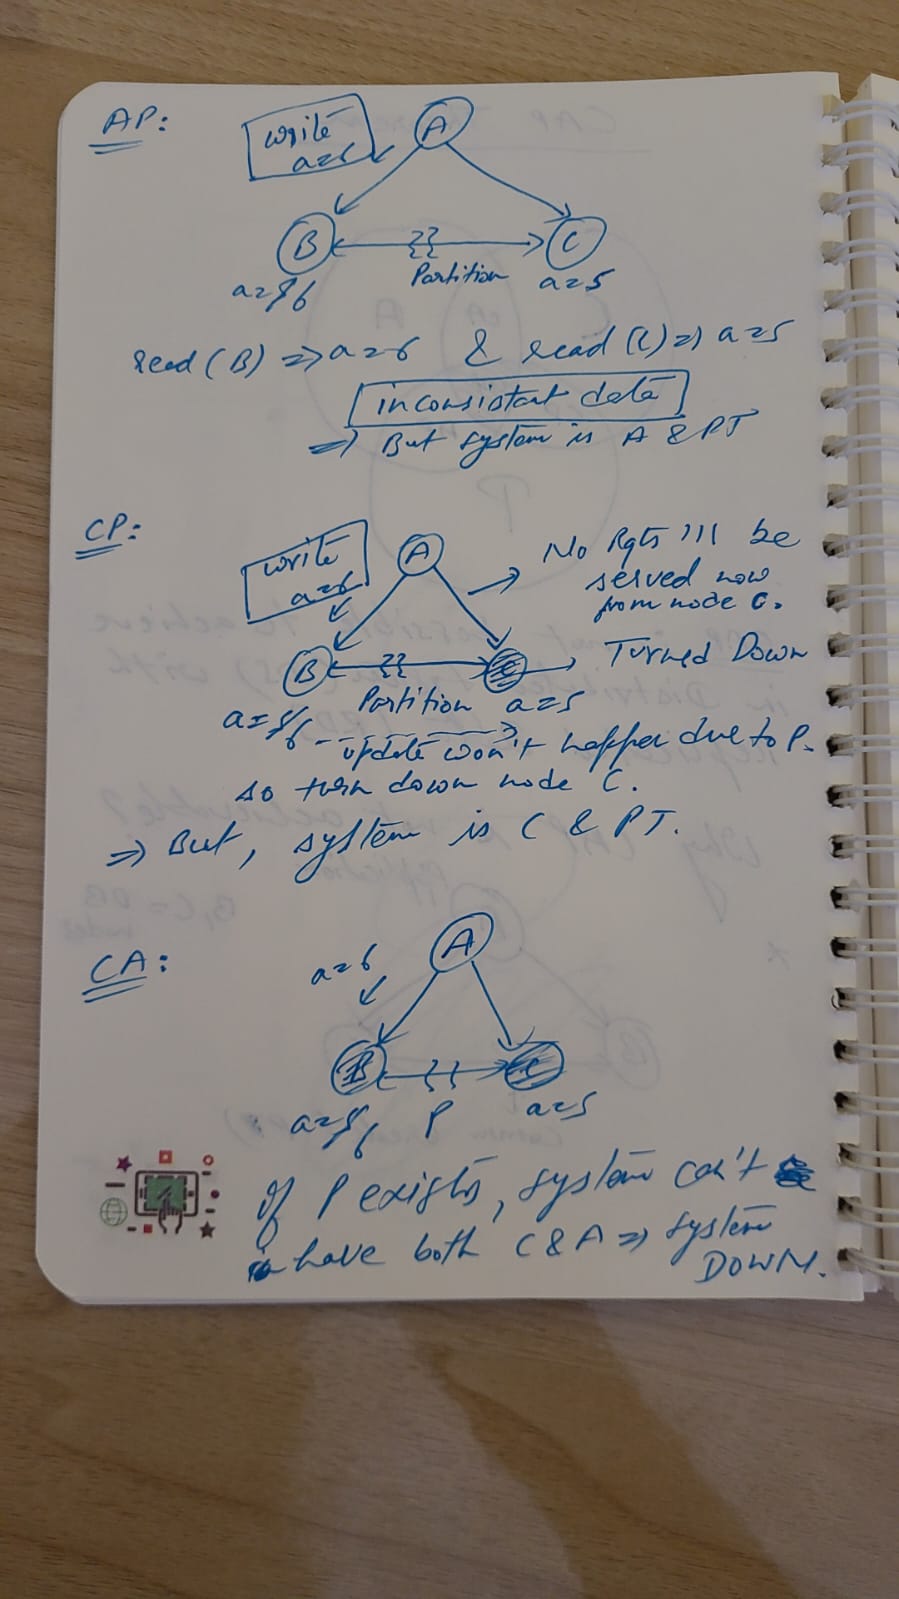 AP:
write
a=6
A
B
C
Partition
a=5̶ 6
a=5
read (B) => a=6 & read (C) => a=5
inconsistant data
=> But system is A & PT
CP:
write
a=6
A
No Rqts 'll be
served now
from node C.
B
C
Turned Down
Partition
a=5
a=5̶ 6
update won't happen due to P.
so turn down node C.
=> But, system is C & PT.
CA:
a=6
A
B
C
a=5̶ 6
P
a=5
If P exists, system can't
have both C & A => system
DOWN.